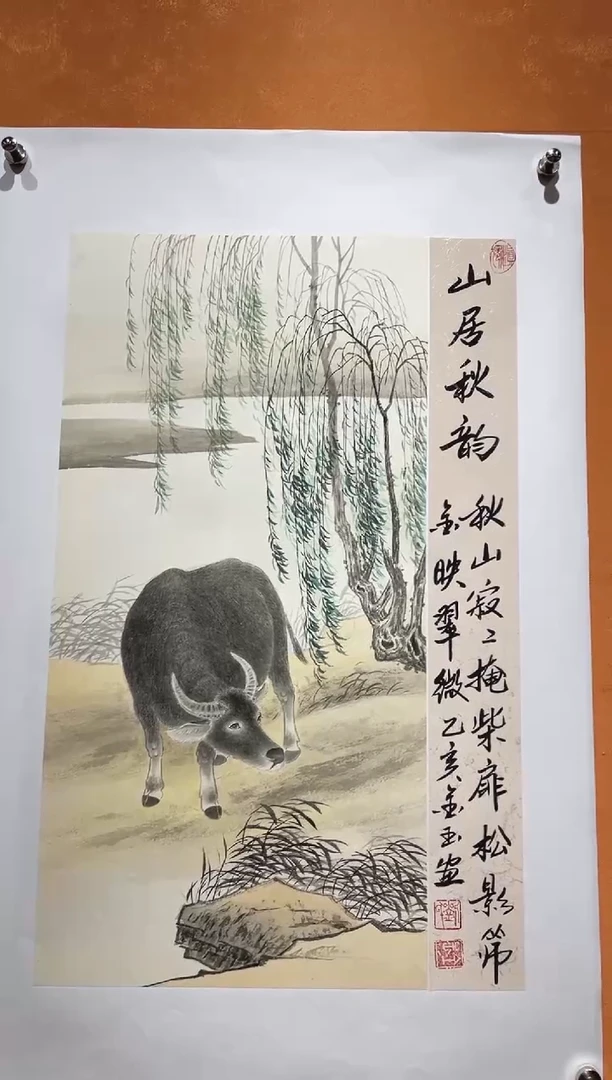 山居秋韵
秋山寂〻掩柴扉松影筛
金映翠微乙亥金玉画